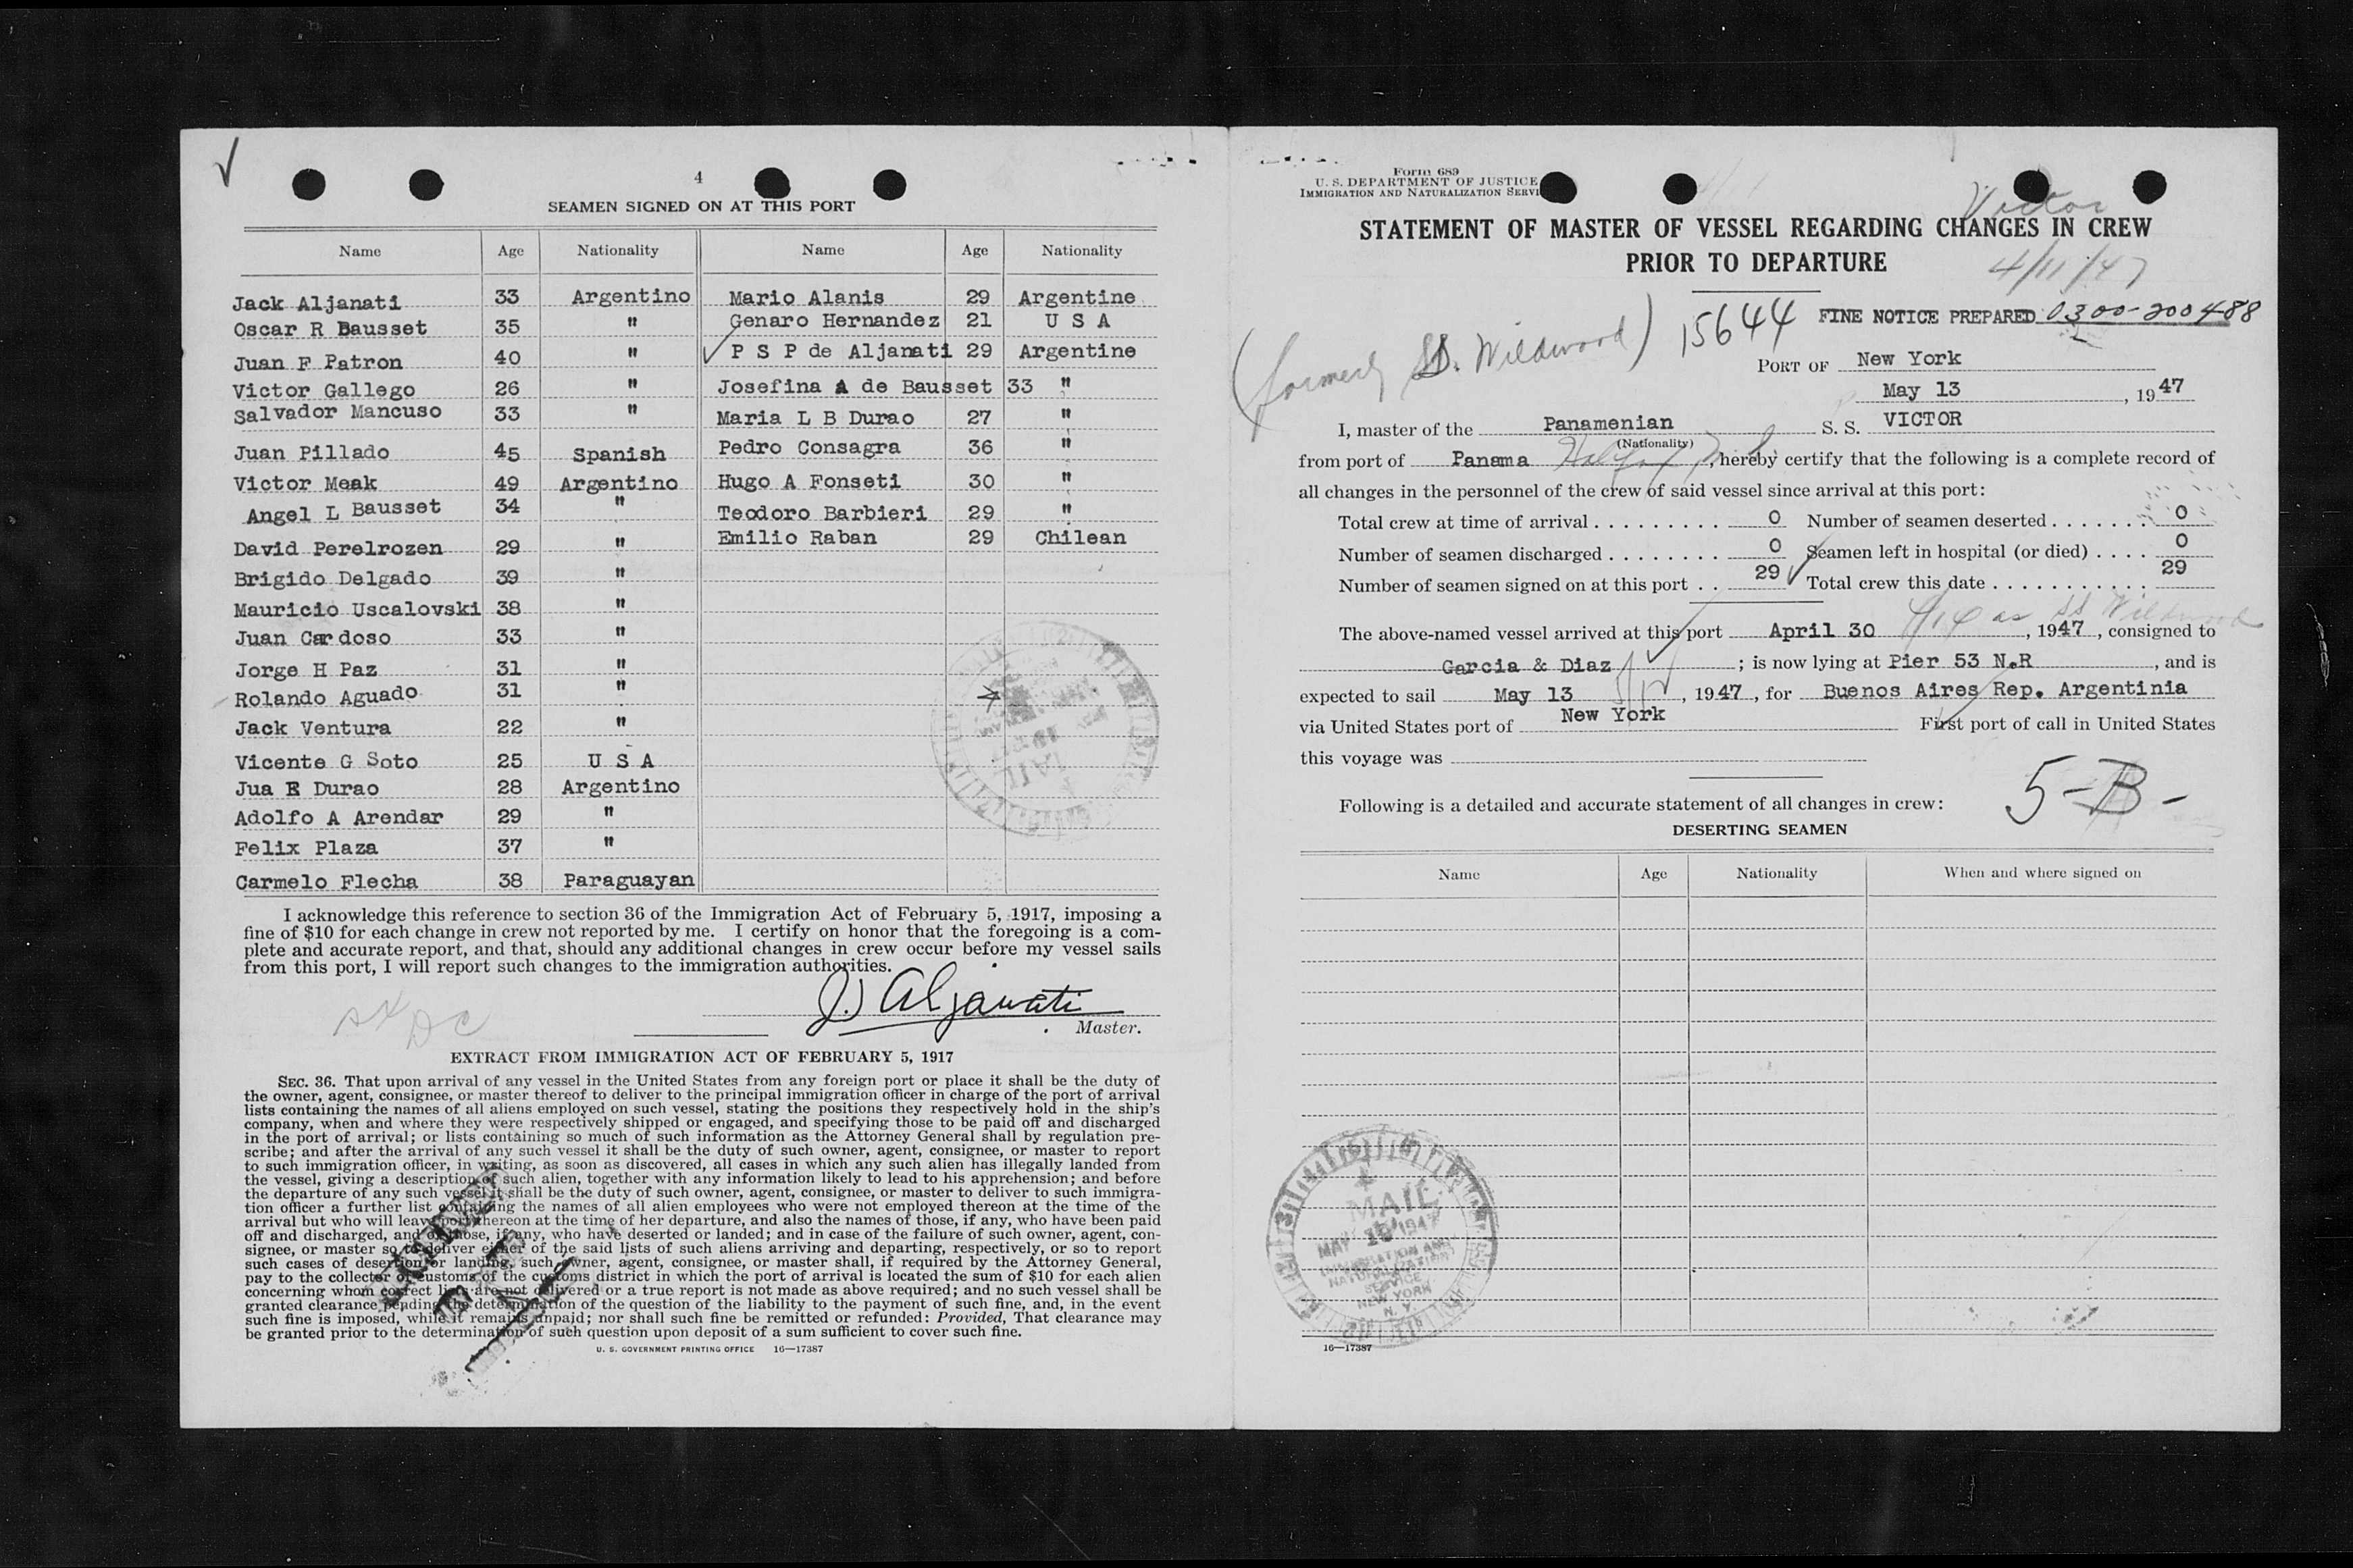 4
SEAMEN SIGNED ON AT THIS PORT
Name Age Nationality Name Age Nationality
Jack Aljanati 33 Argentino Mario Alanis 29 Argentine
Oscar R Bausset 35 " Genaro Hernandez 21 U S A
Juan F Patron 40 " P S P de Aljanati 29 Argentine
Victor Gallego 26 " Josefina A de Bausset 33 "
Salvador Mancuso 33 " Maria L B Durao 27 "
Juan Pillado 45 Spanish Pedro Consagra 36 "
Victor Meak 49 Argentino Hugo A Fonseti 30 "
Angel L Bausset 34 " Teodoro Barbieri 29 "
David Perelrozen 29 " Emilio Raban 29 Chilean
Brigido Delgado 39 "
Mauricio Uscalovski 38 "
Juan Cardoso 33 "
Jorge H Paz 31 "
Rolando Aguado 31 "
Jack Ventura 22 "
Vicente G Soto 25 U S A
Jua E Durao 28 Argentino
Adolfo A Arendar 29 "
Felix Plaza 37 "
Carmelo Flecha 38 Paraguayan
I acknowledge this reference to section 36 of the Immigration Act of February 5, 1917, imposing a
fine of $10 for each change in crew not reported by me. I certify on honor that the foregoing is a com-
plete and accurate report, and that, should any additional changes in crew occur before my vessel sails
from this port, I will report such changes to the immigration authorities.
J. Aljanati
Master.
EXTRACT FROM IMMIGRATION ACT OF FEBRUARY 5, 1917
SEC. 36. That upon arrival of any vessel in the United States from any foreign port or place it shall be the duty of
the owner, agent, consignee, or master thereof to deliver to the principal immigration officer in charge of the port of arrival
lists containing the names of all aliens employed on such vessel, stating the positions they respectively hold in the ship's
company, when and where they were respectively shipped or engaged, and specifying those to be paid off and discharged
in the port of arrival; or lists containing so much of such information as the Attorney General shall by regulation pre-
scribe; and after the arrival of any such vessel it shall be the duty of such owner, agent, consignee, or master to report
to such immigration officer, in writing, as soon as discovered, all cases in which any such alien has illegally landed from
the vessel, giving a description of such alien, together with any information likely to lead to his apprehension; and before
the departure of any such vessel it shall be the duty of such owner, agent, consignee, or master to deliver to such immigra-
tion officer a further list containing the names of all alien employees who were not employed thereon at the time of the
arrival but who will leave port thereon at the time of her departure, and also the names of those, if any, who have been paid
off and discharged, and of those, if any, who have deserted or landed; and in case of the failure of such owner, agent, con-
signee, or master so to deliver either of the said lists of such aliens arriving and departing, respectively, or so to report
such cases of desertion or landing, such owner, agent, consignee, or master shall, if required by the Attorney General,
pay to the collector of customs of the customs district in which the port of arrival is located the sum of $10 for each alien
concerning whom correct lists are not delivered or a true report is not made as above required; and no such vessel shall be
granted clearance pending the determination of the question of the liability to the payment of such fine, and, in the event
such fine is imposed, while it remains unpaid; nor shall such fine be remitted or refunded: Provided, That clearance may
be granted prior to the determination of such question upon deposit of a sum sufficient to cover such fine.
U. S. GOVERNMENT PRINTING OFFICE 16—17387
Form 689
U. S. DEPARTMENT OF JUSTICE
IMMIGRATION AND NATURALIZATION SERVI
Victor
STATEMENT OF MASTER OF VESSEL REGARDING CHANGES IN CREW
PRIOR TO DEPARTURE
4/11/47
(formerly SS. Wildwood) 15644 FINE NOTICE PREPARED 0300-200488
PORT OF New York
May 13, 1947
I, master of the Panamenian S. S. VICTOR
(Nationality)
from port of Panama Halifax, N.S., hereby certify that the following is a complete record of
all changes in the personnel of the crew of said vessel since arrival at this port:
Total crew at time of arrival . . . . . . . . . 0 Number of seamen deserted . . . . . . . 0
Number of seamen discharged . . . . . . . . 0 Seamen left in hospital (or died) . . . . 0
Number of seamen signed on at this port . . 29 Total crew this date . . . . . . . . . . . 29
The above-named vessel arrived at this port April 30 as SS Wildwood, 1947, consigned to
Garcia & Diaz; is now lying at Pier 53 N.R, and is
expected to sail May 13, 1947, for Buenos Aires Rep. Argentinia
via United States port of New York First port of call in United States
this voyage was
5-B-
Following is a detailed and accurate statement of all changes in crew:
DESERTING SEAMEN
Name Age Nationality When and where signed on
MAIL
MAY 1947
IMMIGRATION AND
NATURALIZATION
SERVICE
NEW YORK
N. Y.
16—17387